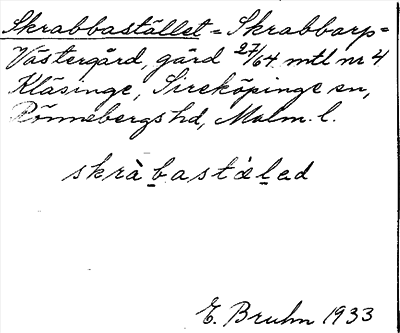 Skrabbastället = Skrabbarp=
Västergård, gård 27/64 mtl nr 4
Kläsinge, Sireköpinge sn,
Rönnebergs hd, Malm. l.
skràb̲astæl̲ad
E. Bruhn 1933